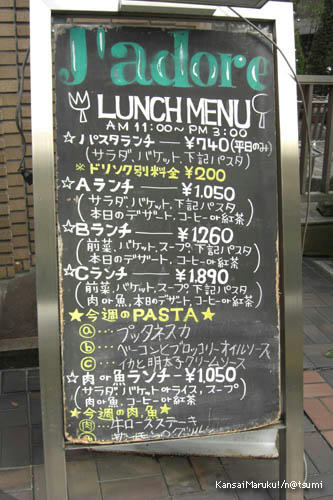 J'adore
LUNCH MENU
AM 11:00~PM 3:00
☆パスタランチ — ¥740(平日のみ)
(サラダ、バケット、下記パスタ)
※ドリンク別料金 ¥200
☆Aランチ — ¥1.050
(サラダ、バケット、下記パスタ
本日のデザート、コーヒーor紅茶)
☆Bランチ — ¥1.260
(前菜、バケット、スープ、下記パスタ
本日のデザート、コーヒーor紅茶)
☆Cランチ — ¥1.890
(前菜、バケット、スープ、下記パスタ
肉or魚、本日のデザート、コーヒーor紅茶)
★今週のPASTA★
ⓐ プッタネスカ
ⓑ ベーコンとブロッコリーオイルソース
ⓒ イカと明太子クリームソース
☆肉or魚ランチ — ¥1.050
(サラダ、バケットorライス、スープ
肉or魚、コーヒーor紅茶)
★今週の肉、魚★
肉 牛ロースステーキ
KansaiMaruku!/n@tsumi